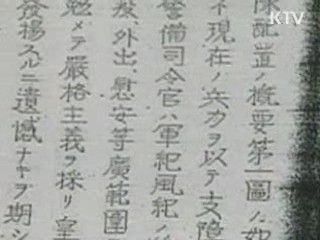 KTV
配置ノ概要第一圖ノ如
現在ノ兵力ヲ以テ支障
警備司令官ハ軍紀風紀ノ
外出、慰安等廣範圍
勉メテ嚴格主義ヲ採リ皇
發揚スルニ遺憾ナキヲ期シ